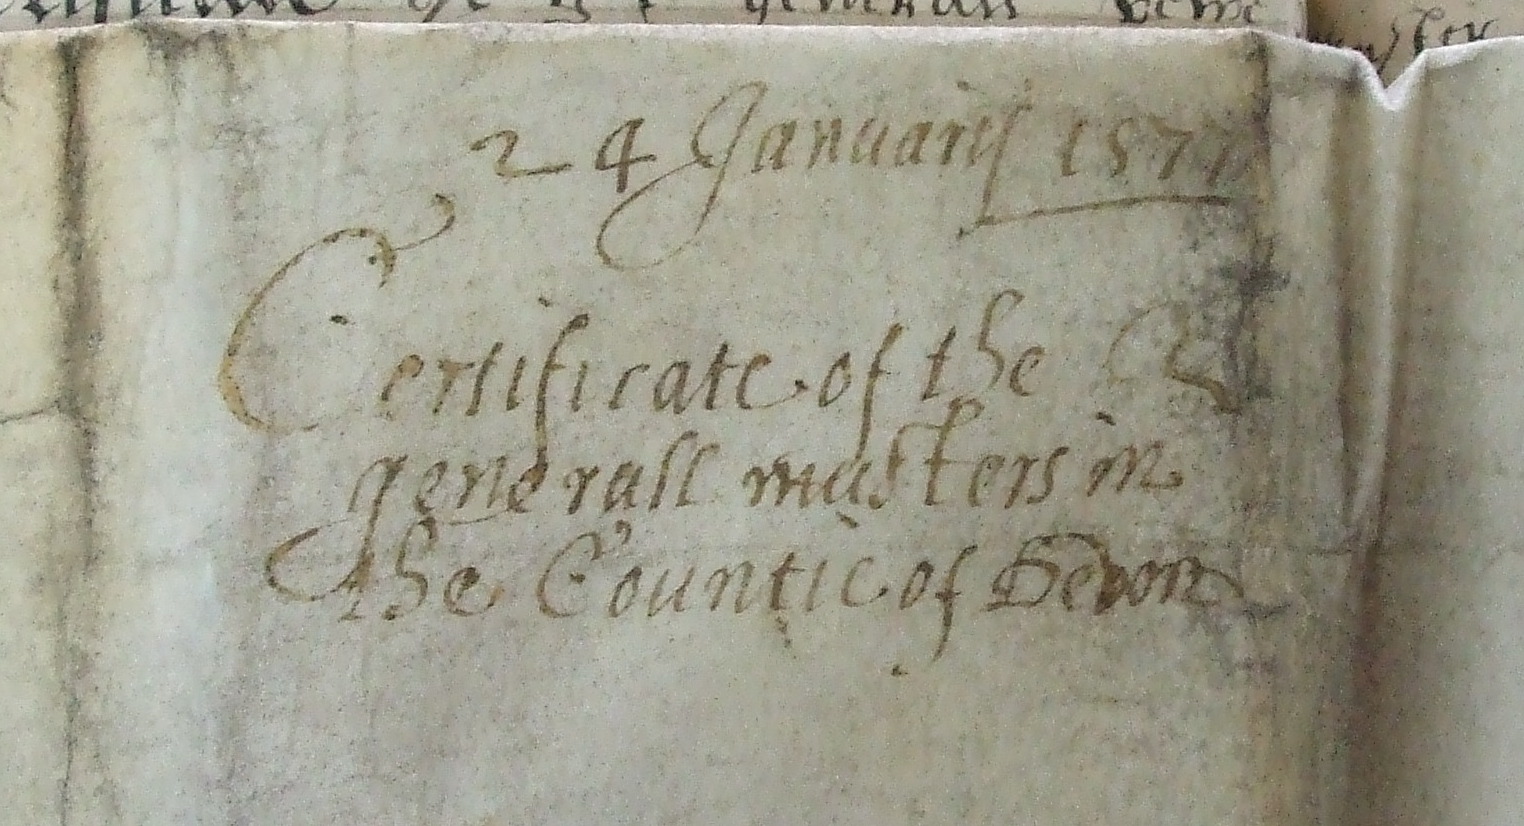 generall
24 January 1577
Certificate of the
generall musters in
the Countie of Devon